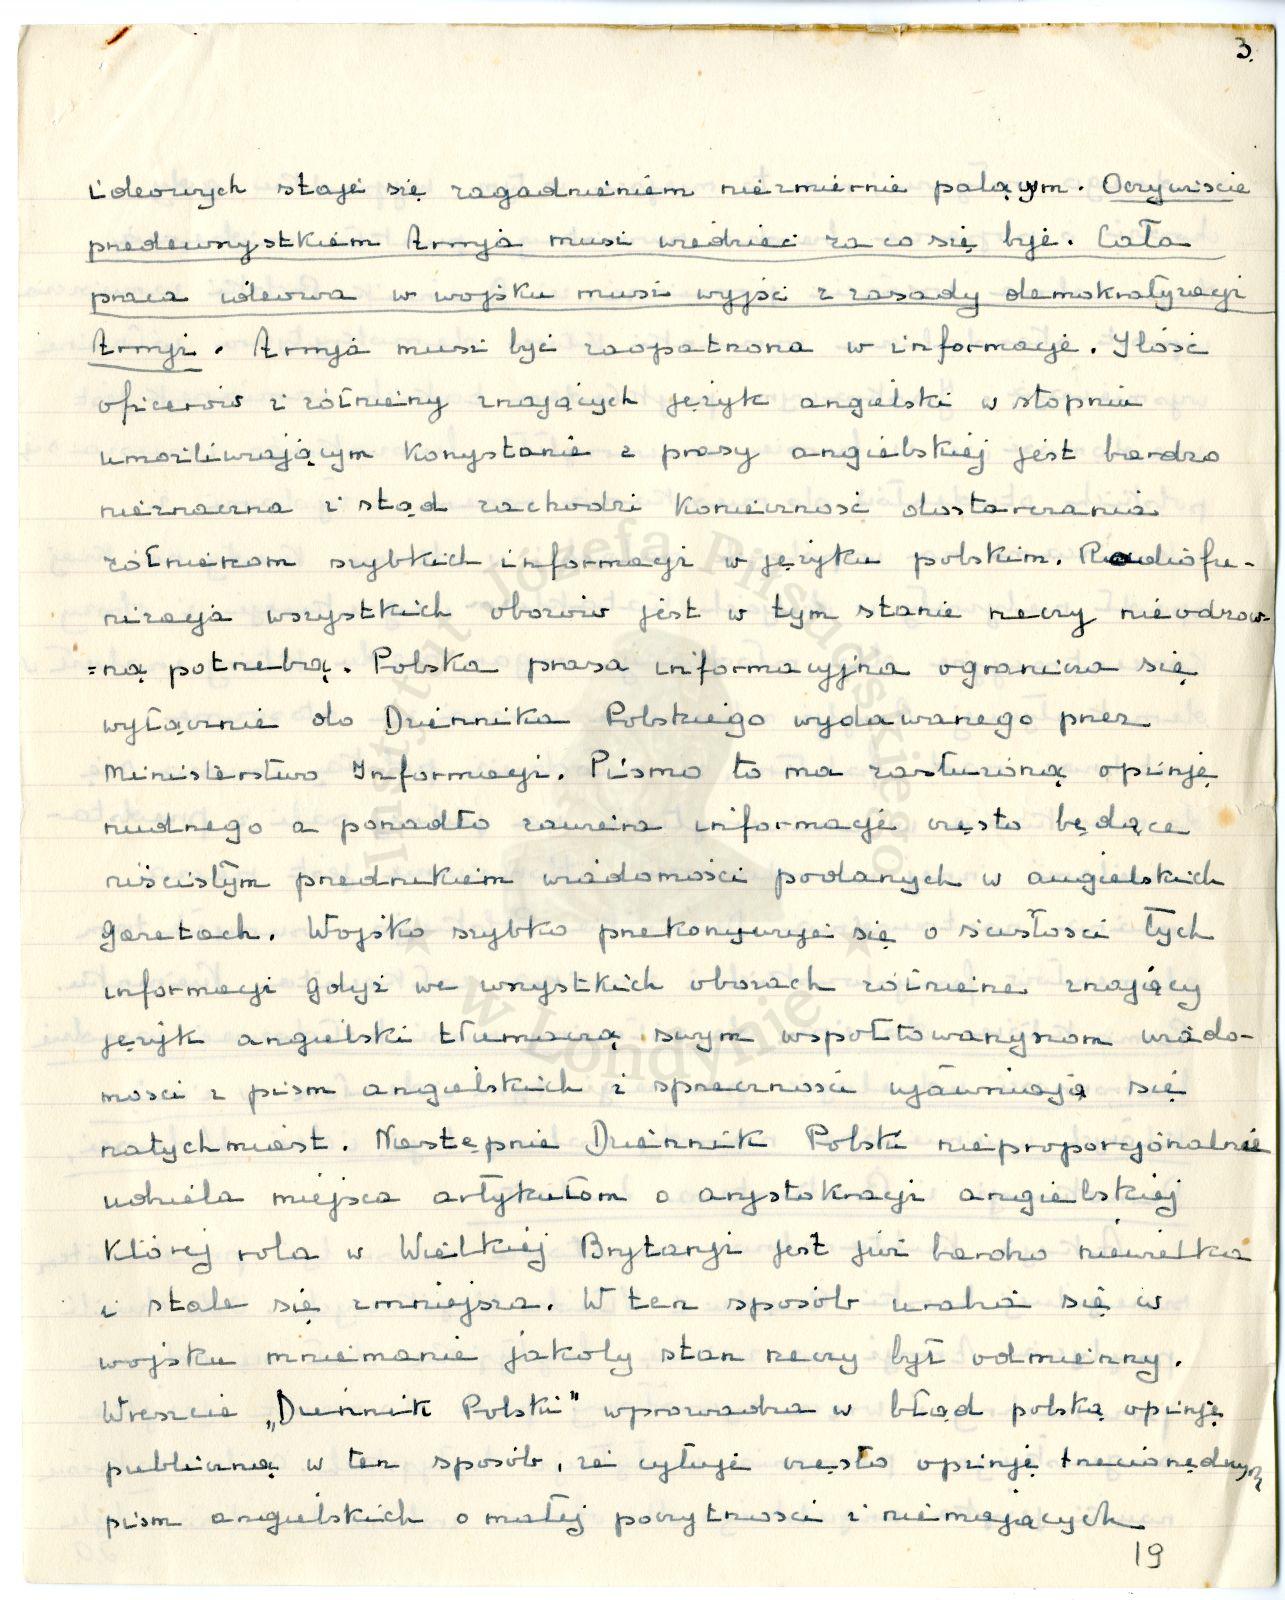 3.
ideowych staje się zagadnieniem niezmiernie palącym. Oczywiście
przedewszystkiem Armja musi wiedzieć za co się bije. Cała
praca ideowa w wojsku musi wyjść z zasady demokratyzacji
Armji. Armja musi być zaopatrzona w informacje. Ilość
oficerów i żółnierzy znających język angielski w stopniu
umożliwiającym korzystanie z prasy angielskiej jest bardzo
nieznaczna i stąd zachodzi konieczność dostarczania
żółnierzom szybkich informacji w języku polskim. Radiofo-
nizacja wszystkich obozów jest w tym stanie rzeczy nieodzow-
=ną potrzebą. Polska prasa informacyjna ogranicza się
wyłącznie do Dziennika Polskiego wydawanego przez
Ministerstwo Informacji. Pismo to ma zasłużoną opinję
nudnego a ponadto zawiera informacje często będące
nieścisłym przedrukiem wiadomości podanych w angielskich
gazetach. Wojsko szybko przekonywuje się o ścisłości tych
informacji gdyż we wszystkich obozach żółnierze znający
język angielski tłumaczą swym współtowarzyszom wiado-
mości z pism angielskich i sprzeczności ujawniają się
natychmiast. Następnie Dziennik Polski nieproporcjonalnie
udziela miejsca artykułom o arystokracji angielskiej
której rola w Wielkiej Brytanji jest już bardzo niewielka
i stale się zmniejsza. W ten sposób urabia się w
wojsku mniemanie jakoby stan rzeczy był odmienny.
Wreszcie „Dziennik Polski" wprowadza w błąd polską opinję
publiczną w ten sposób, że cytuje często opinję trzeciorzędnych
pism angielskich o małej poczytności i niemających
19
Instytut Józefa Piłsudskiego
w Londynie